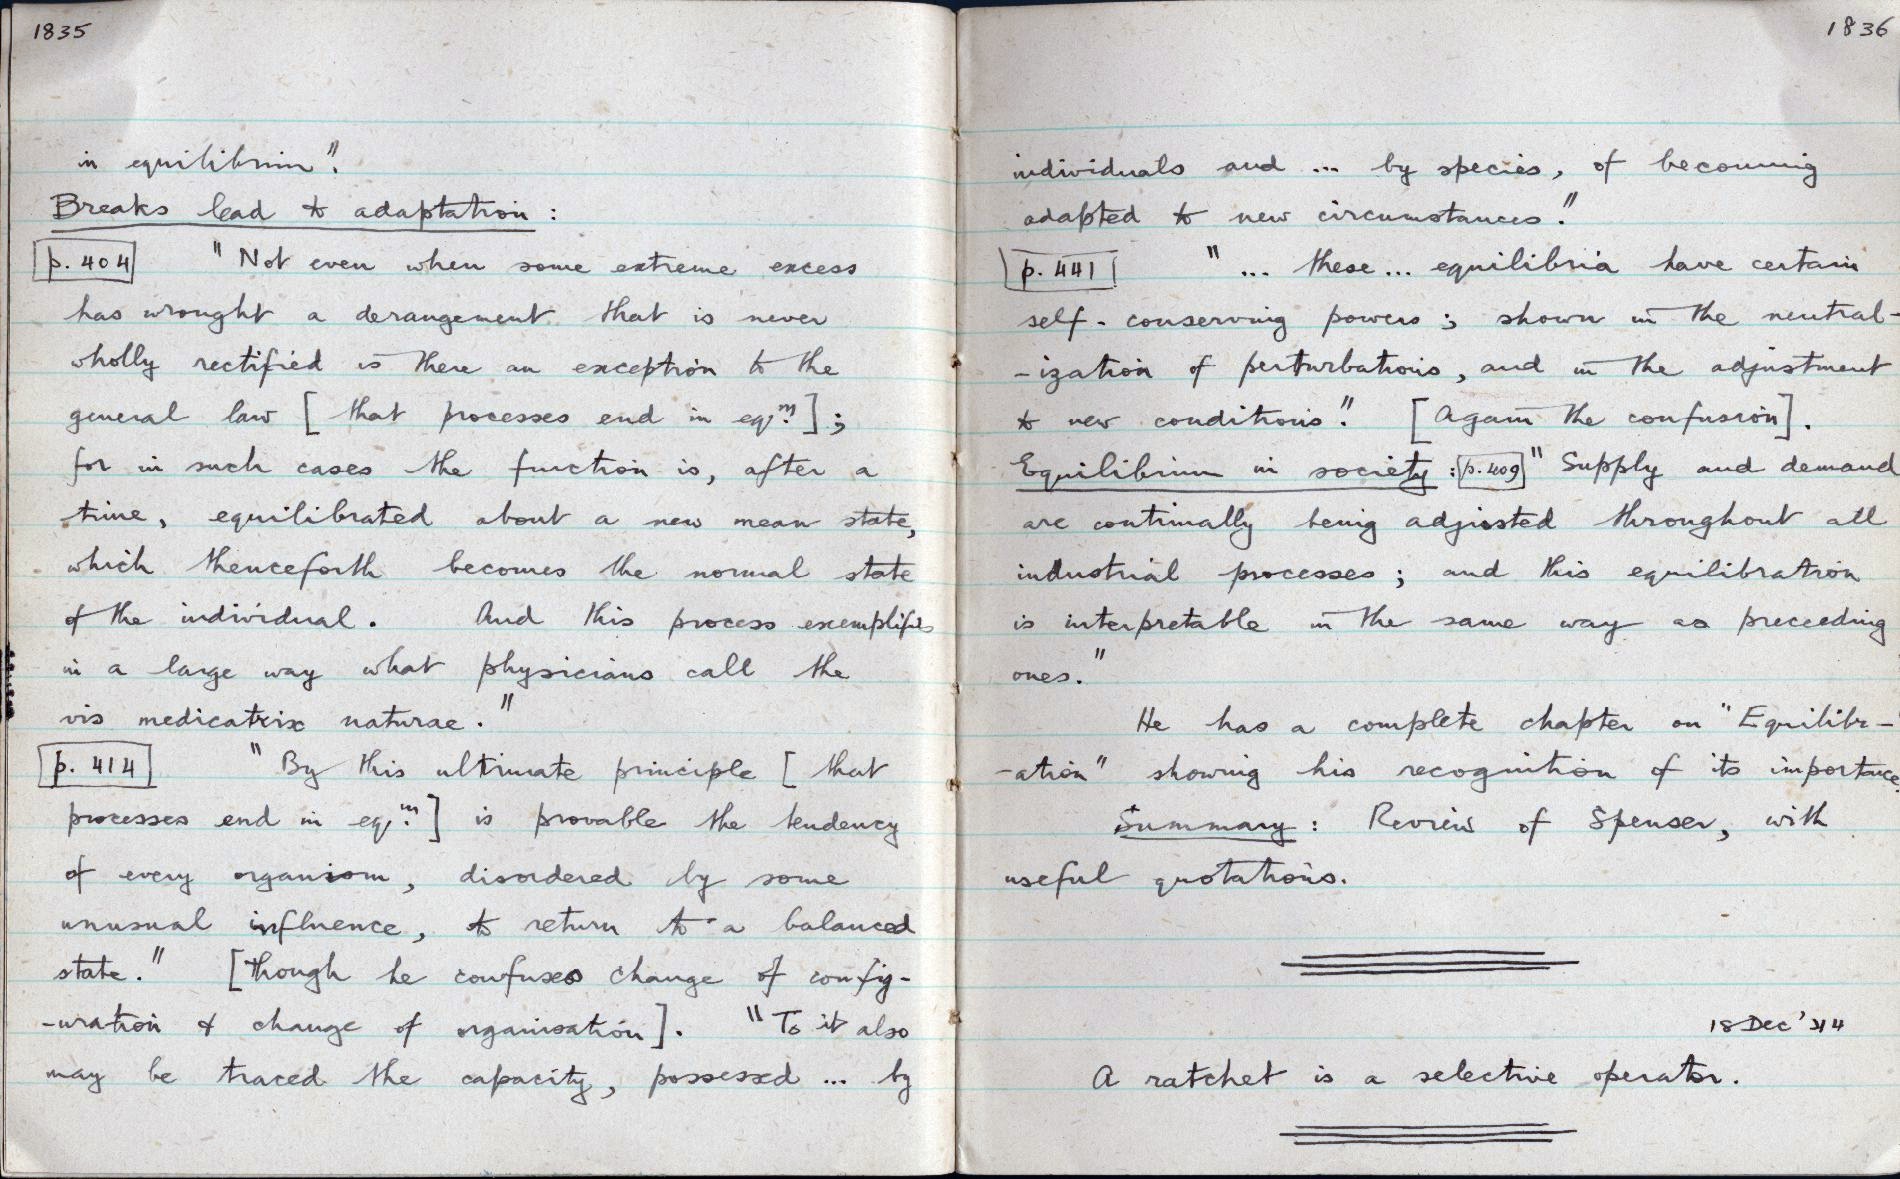 1835
in equilibrium".
Breaks lead to adaptation :
p. 404 "Not even when some extreme excess
has wrought a derangement that is never
wholly rectified is there an exception to the
general law [that processes end in eqm.];
for in such cases the function is, after a
time, equilibrated about a new mean state,
which thenceforth becomes the normal state
of the individual. And this process exemplifies
in a large way what physicians call the
vis medicatrix naturae."
p. 414 "By this ultimate principle [that
processes end in eqm.] is provable the tendency
of every organism, disordered by some
unusual influence, to return to a balanced
state." [though he confuses change of config-
-uration & change of organisation]. "To it also
may be traced the capacity, possessed ... by
1836
individuals and ... by species, of becoming
adapted to new circumstances."
p. 441 "... these ... equilibria have certain
self-conserving powers; shown in the neutral-
-ization of perturbations, and in the adjustment
to new conditions". [Again the confusion].
Equilibrium in society : p. 409 "Supply and demand
are continually being adjusted throughout all
industrial processes; and this equilibration
is interpretable in the same way as preceeding
ones."
He has a complete chapter on "Equilibr-
-ation" showing his recognition of its importance.
Summary : Review of Spenser, with
useful quotations.
18 Dec '44
A ratchet is a selective operator.